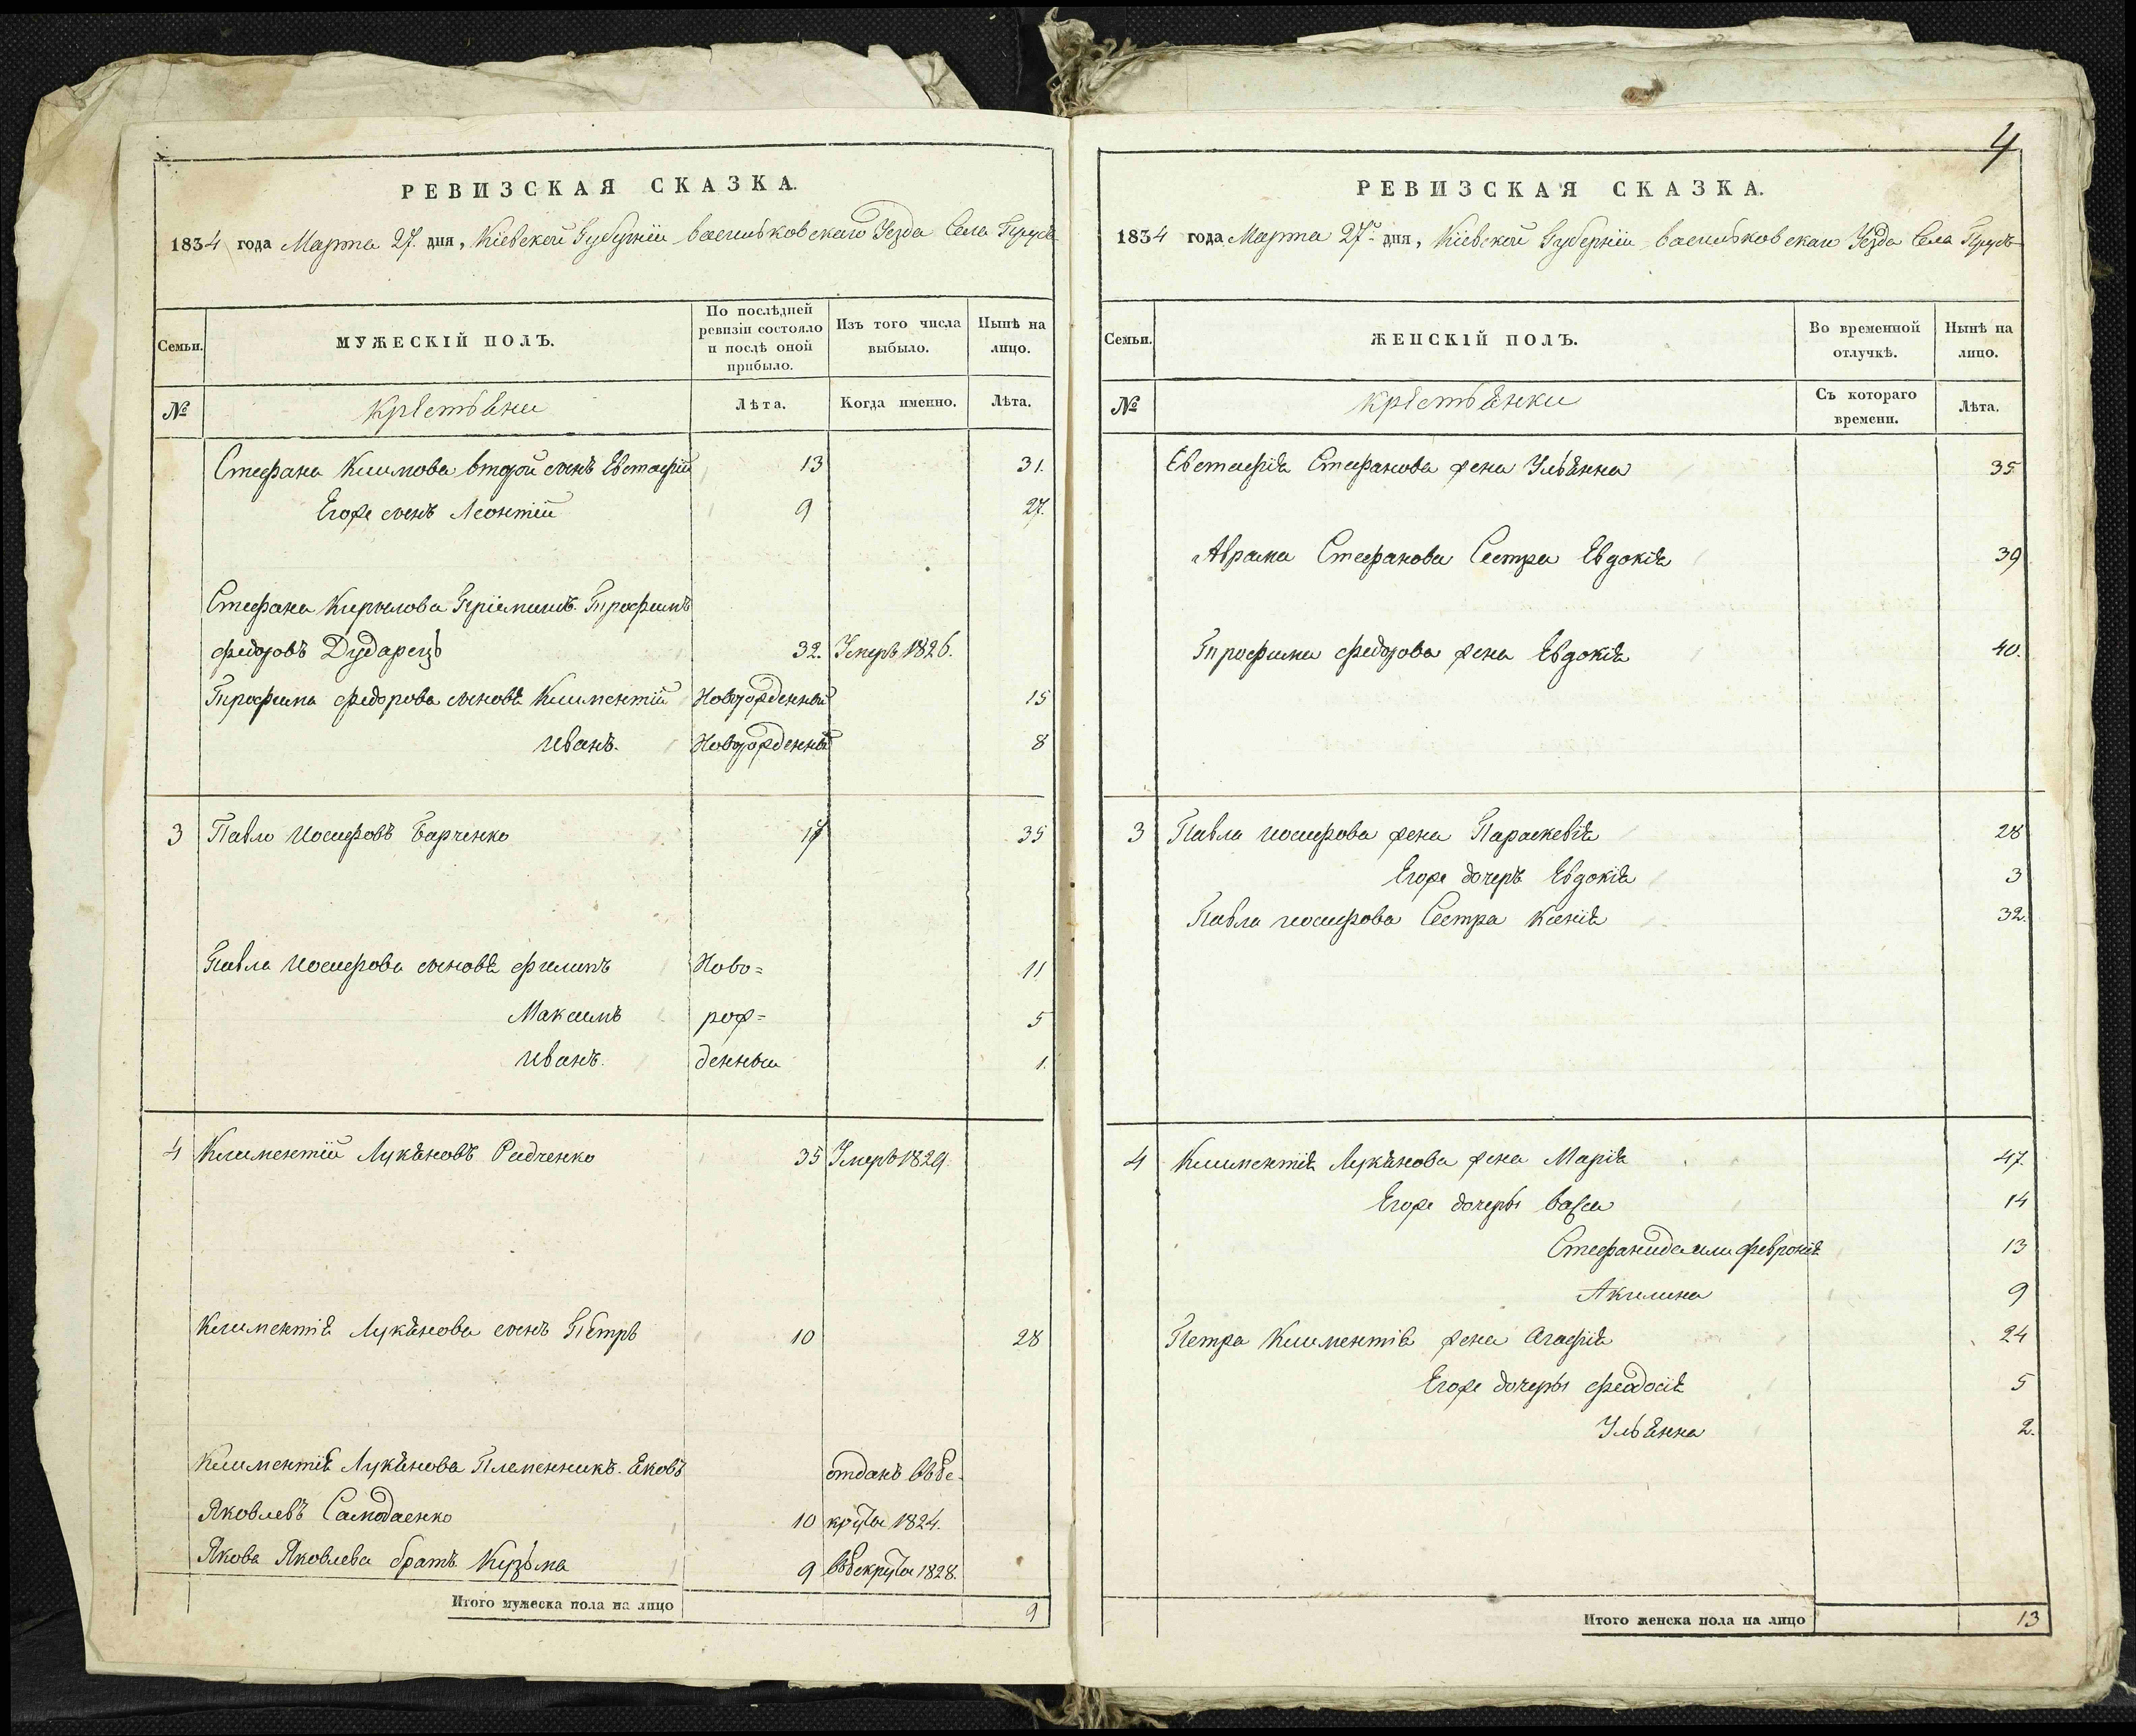 РЕВИЗСКАЯ СКАЗКА.
1834 года Марта 27. дня, Кіевской Губерніи Васильковскаго Уезда Села Прусъ
Семьи. МУЖЕСКІЙ ПОЛЪ. По послѣдней ревизіи состояло и послѣ оной прибыло. Изъ того числа выбыло. Нынѣ на лицо.
№ Крестьяни Лѣта. Когда именно. Лѣта.
Стефана Климова второй сынъ Евстафій 13 31.
Егоже сынъ Леонтій 9 27.
Стефана Кирилова Пріемишъ Трофимъ
Федоровъ Дударецъ 32. Умеръ 1826.
Трофима Федорова сыновя Климентій Новорожденный 15
Иванъ. Новорожденный 8
3 Павло Иосифовъ Барченко 17 35
Павла Иосифова сыновя Филипъ Ново= 11
Максимъ рож= 5
Иванъ. денныи 1.
4 Климентій Лукяновъ Радченко 35 Умеръ 1829.
Климентія Лукянова сынъ Петръ 10 28
Климентія Лукянова Племенникъ Яковъ отданъ въ ре-
Яковлевъ Самодаенко 10 круты 1824.
Якова Яковлева братъ Кузьма 9 въ рекруты 1828.
Итого мужеска пола на лицо 9
4
РЕВИЗСКАЯ СКАЗКА.
1834 года Марта 27го дня, Кіевской Губерніи Васильковскаго Уезда Села Прусъ
Семьи. ЖЕНСКІЙ ПОЛЪ. Во временной отлучкѣ. Нынѣ на лицо.
№ Крестьянки Съ котораго времени. Лѣта.
Евстафія Стефанова жена Ульянна 35
Аврама Стефанова Сестра Евдокія 39
Трофима Федорова жена Евдокія 40.
3 Павла Иосифова жена Параскевія 28
Егоже дочеръ Евдокія 3
Павла Иосифова Сестра Ксенія 32.
4 Климентія Лукянова жена Марія 47.
Егоже дочеры Васса 14
Стефанида или Февронія 13
Акилина 9
Петра Климентія жена Агафія 24
Егоже дочеры Феодосія 5
Ульянна 2.
Итого женска пола на лицо 13